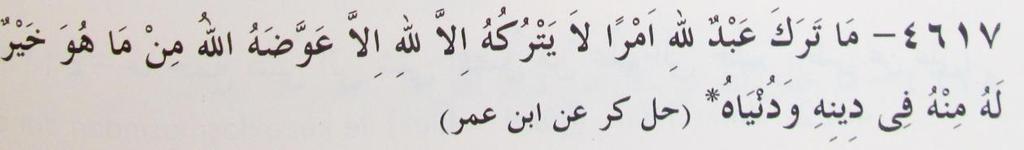 ٤٦١٧− مَا تَرَكَ عَبْدٌ لِلّٰهِ اَمْرًا لاَ يَتْرُكُهُ اِلاَّ لِلّٰهِ اِلاَّ عَوَّضَهُ اللهُ مِنْ مَا هُوَ خَيْرٌ
لَهُ مِنْهُ فِى دِينِهِ وَدُنْيَاهُ* (حل كر عن ابن عمر)